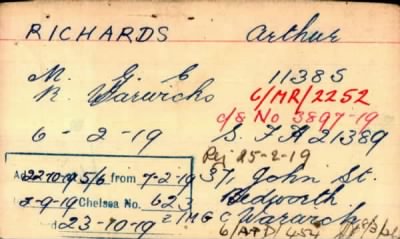 RICHARDS Arthur
M. G. C 11385
R. Warwicks 6/MR/2252
c/8 No 3897-19
6-2-19 S. F A 21389
Rej 25-2-19
22-10-19 5/6 from 7-2-19 37 John St.
8-9-19 Chelsea No. 623 Bedworth
23-10-19 2/MG C Warwick
6/APD/454